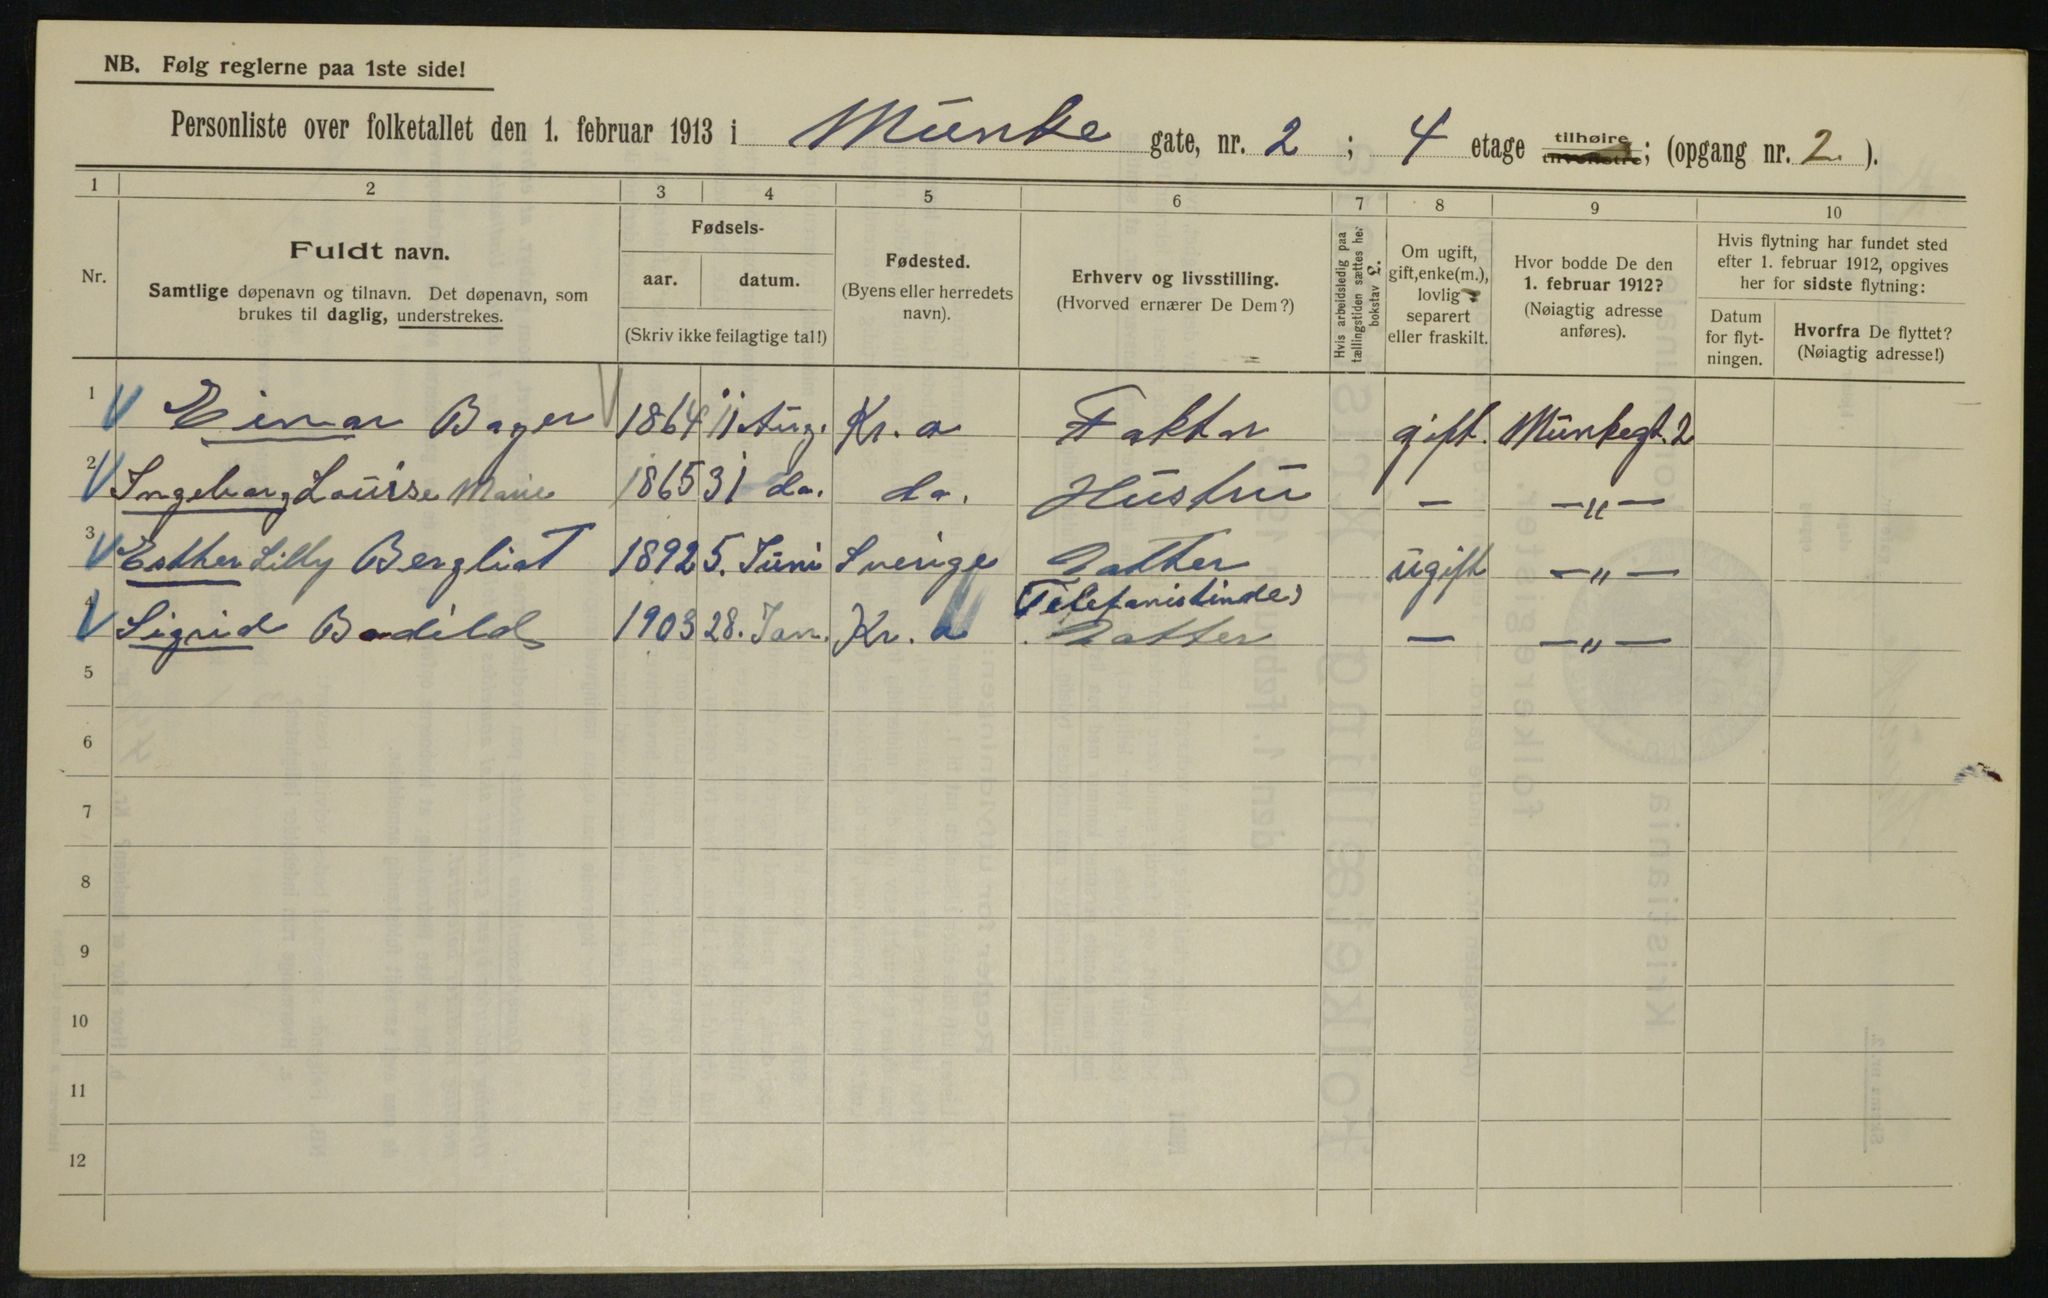 NB. Følg reglerne paa 1ste side!
Personliste over folketallet den 1. februar 1913 i Munke gate, nr. 2 ; 4 etage tilhøire tilvenstre; (opgang nr. 2. ).
1 2 3 4 5 6 7 8 9 10
Nr.
Fuldt navn.
Samtlige døpenavn og tilnavn. Det døpenavn, som
brukes til daglig, understrekes.
Fødsels-
aar. datum.
(Skriv ikke feilagtige tal!)
Fødested.
(Byens eller herredets
navn).
Erhverv og livsstilling.
(Hvorved ernærer De Dem?)
Hvis arbeidsledig paa
tællingstiden sættes her
bokstav L.
Om ugift,
gift, enke(m.),
lovlig
separert
eller fraskilt.
Hvor bodde De den
1. februar 1912?
(Nøiagtig adresse
anføres).
Hvis flytning har fundet sted
efter 1. februar 1912, opgives
her for sidste flytning:
Datum
for flyt-
ningen.
Hvorfra De flyttet?
(Nøiagtig adresse!)
1 Einar Bager 1864 11 Aug. Kr. a Faktor gift. Munkegt. 2
2 Ingeborg Louise Marie 1865 31 do. do. Hustru — —„—
3 Esther Lilly Bergliot 1892 5. Juni Sverige Datter ugift —„—
Telefonistinde
4 Sigrid Bodild 1903 28. Jan. Kr. a Datter — —„—
5
6
7
8
9
10
11
12